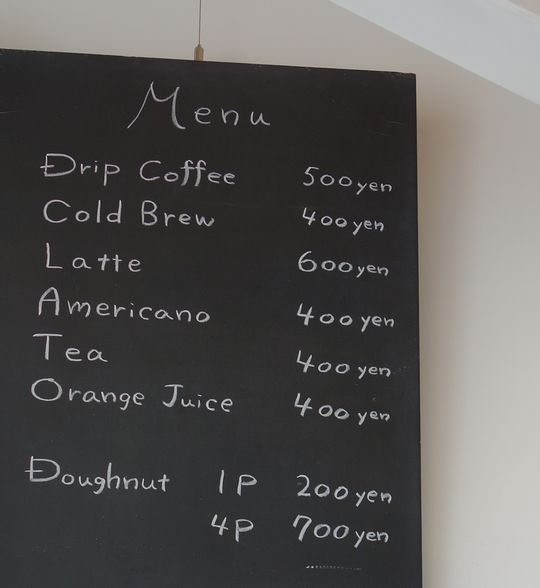 Menu
Drip Coffee 500yen
Cold Brew 400yen
Latte 600yen
Americano 400yen
Tea 400yen
Orange Juice 400yen
Doughnut 1P 200yen
4P 700yen